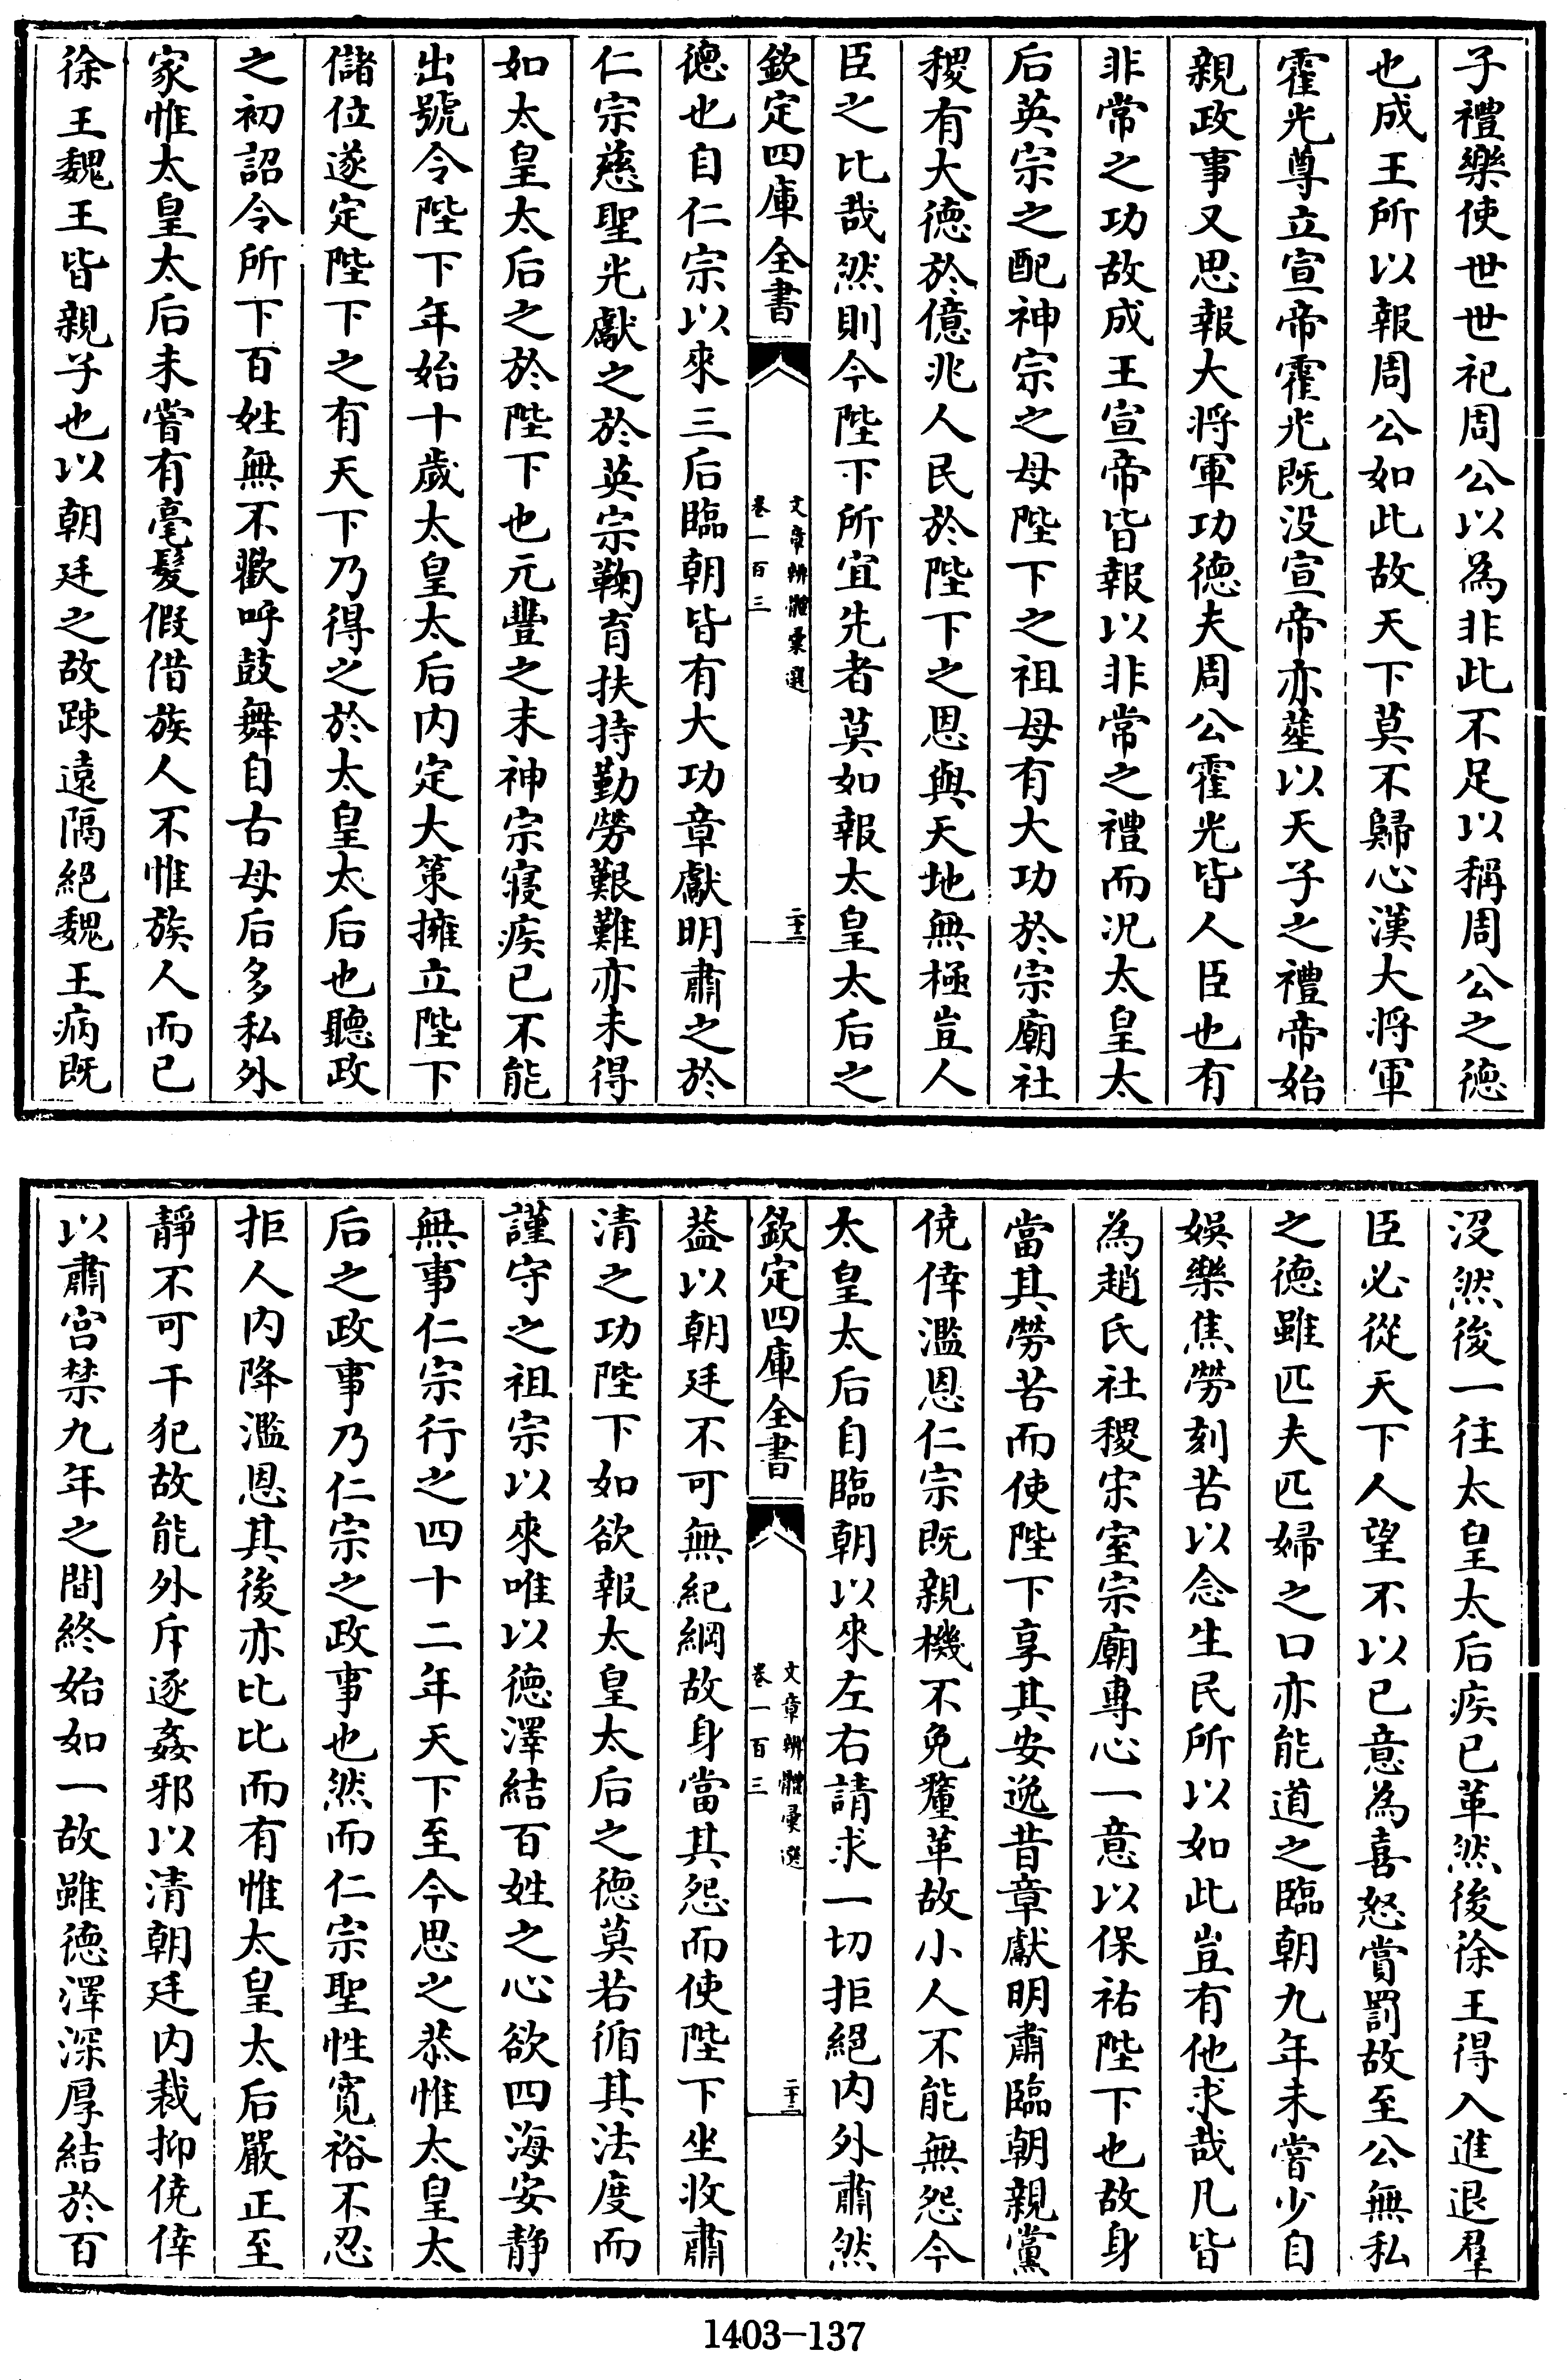 子禮樂使世世祀周公以為非此不足以稱周公之德
也成王所以報周公如此故天下莫不歸心漢大將軍
霍光尊立宣帝霍光既没宣帝亦塟以天子之禮帝始
親政事又思報大將軍功德夫周公霍光皆人臣也有
非常之功故成王宣帝皆報以非常之禮而况太皇太
后英宗之配神宗之母陛下之祖母有大功於宗廟社
稷有大德於億兆人民於陛下之恩與天地無極豈人
臣之比哉然則今陛下所宜先者莫如報太皇太后之
欽定四庫全書
文章辨體彙選
卷一百三
二十二
德也自仁宗以來三后臨朝皆有大功章獻明肅之於
仁宗慈聖光獻之於英宗鞠育扶持勤勞艱難亦未得
如太皇太后之於陛下也元豐之末神宗寢疾已不能
出號令陛下年始十歲太皇太后内定大策擁立陛下
儲位遂定陛下之有天下乃得之於太皇太后也聽政
之初詔令所下百姓無不歡呼鼓舞自古母后多私外
家惟太皇太后未嘗有毫髮假借族人不惟族人而已
徐王魏王皆親子也以朝廷之故踈遠隔絕魏王病既
沒然後一往太皇太后疾已革然後徐王得入進退羣
臣必從天下人望不以已意為喜怒賞罰故至公無私
之德雖匹夫匹婦之口亦能道之臨朝九年未嘗少自
娛樂焦勞刻苦以念生民所以如此豈有他求哉凡皆
為趙氏社稷宋室宗廟專心一意以保祐陛下也故身
當其勞苦而使陛下享其安逸昔章獻明肅臨朝親黨
僥倖濫恩仁宗既親機不免釐革故小人不能無怨今
太皇太后自臨朝以來左右請求一切拒絕内外肅然
欽定四庫全書
文章辨體彙選
卷一百三
二十三
葢以朝廷不可無紀綱故身當其怨而使陛下坐收肅
清之功陛下如欲報太皇太后之德莫若循其法度而
謹守之祖宗以來唯以德澤結百姓之心欲四海安靜
無事仁宗行之四十二年天下至今思之恭惟太皇太
后之政事乃仁宗之政事也然而仁宗聖性寬裕不忍
拒人内降濫恩其後亦比比而有惟太皇太后嚴正至
靜不可干犯故能外斥逐姦邪以清朝廷内裁抑僥倖
以肅宮禁九年之間終始如一故雖德澤深厚結於百
1403-137